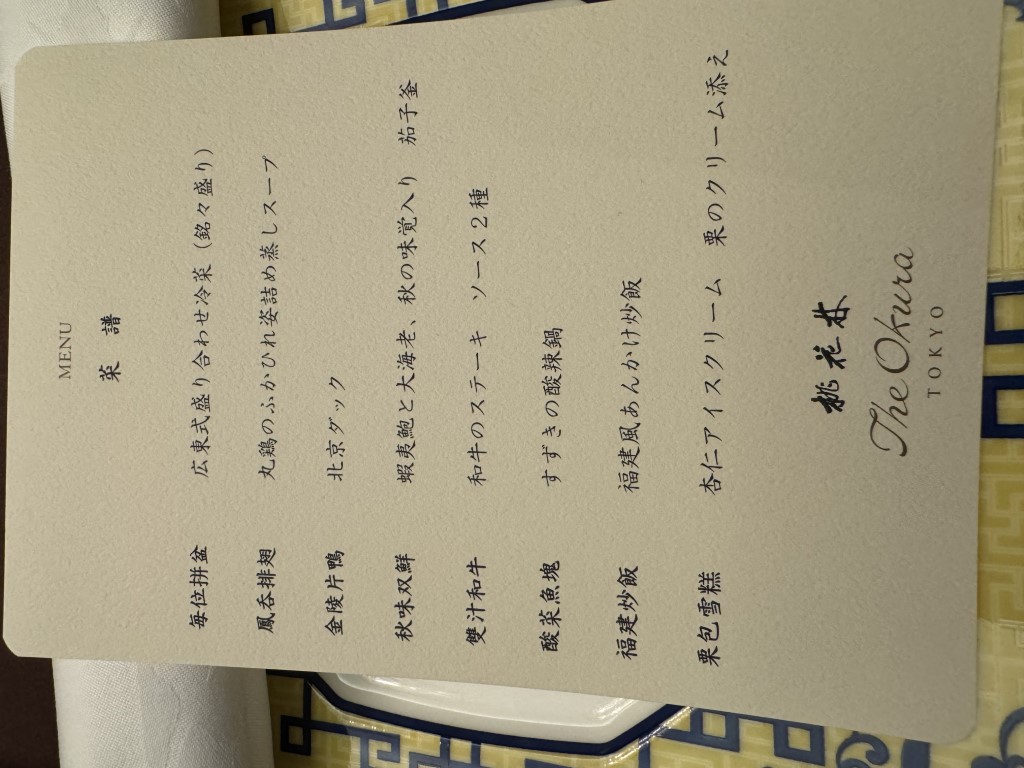 MENU
菜 譜
毎位拼盆 広東式盛り合わせ冷菜（銘々盛り）
鳳呑排翅 丸鶏のふかひれ姿詰め蒸しスープ
金陵片鴨 北京ダック
秋味双鮮 蝦夷鮑と大海老、秋の味覚入り 茄子釜
雙汁和牛 和牛のステーキ ソース２種
酸菜魚塊 すずきの酸辣鍋
福建炒飯 福建風あんかけ炒飯
栗包雪糕 杏仁アイスクリーム 栗のクリーム添え
桃花林
The Okura
TOKYO